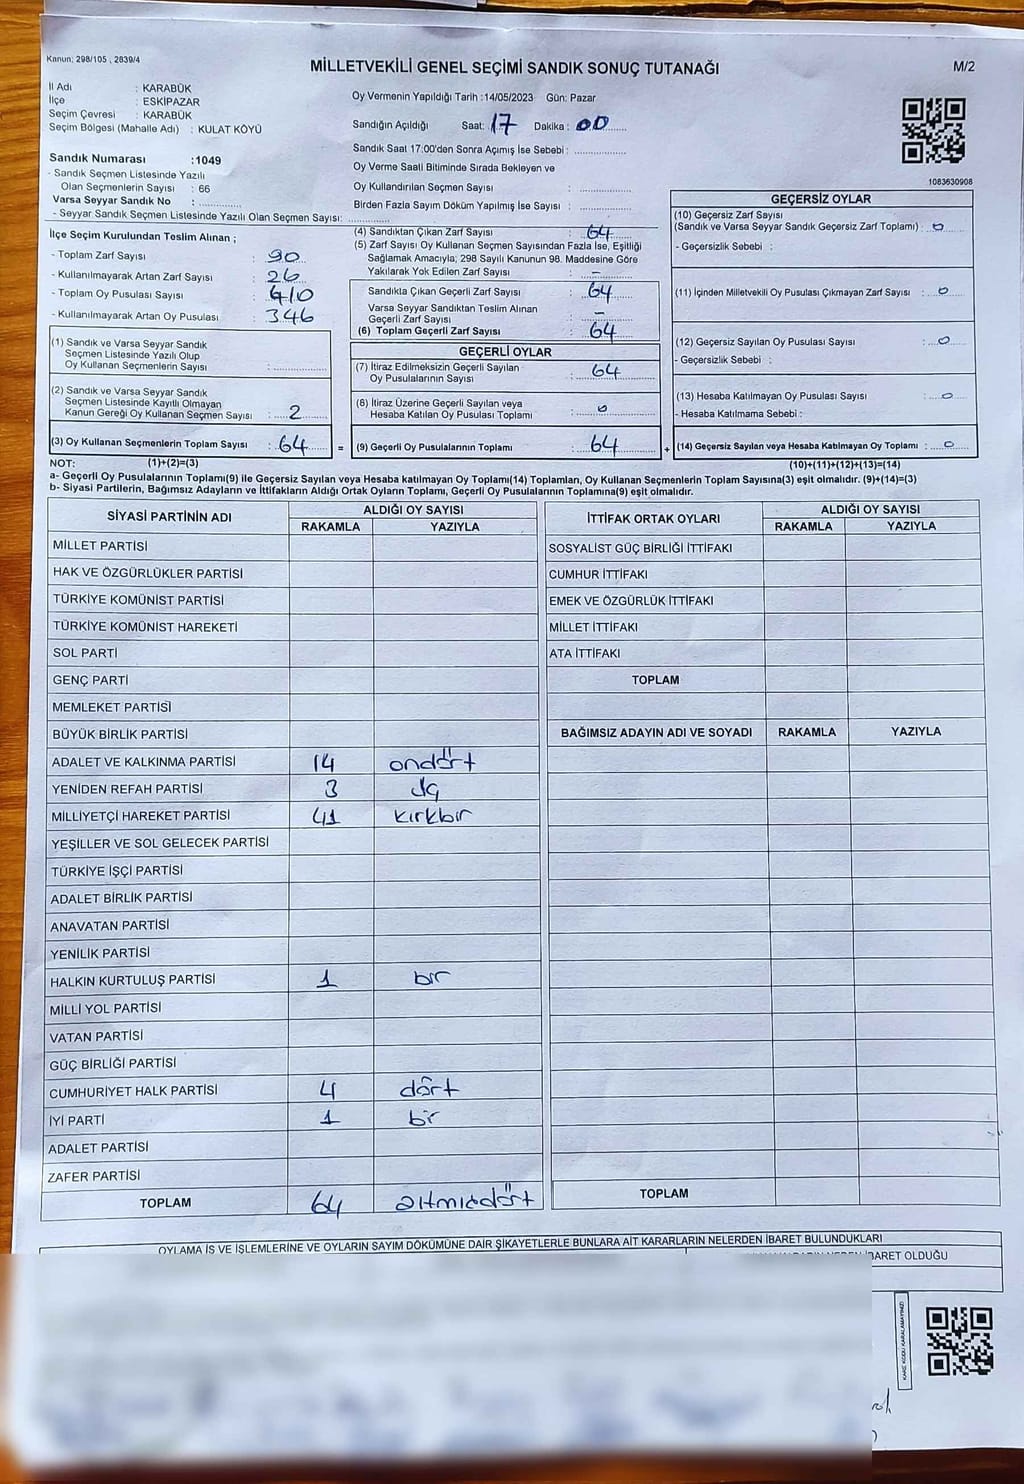 Kanun: 298/105 , 2839/4
MİLLETVEKİLİ GENEL SEÇİMİ SANDIK SONUÇ TUTANAĞI
M/2
İl Adı : KARABÜK
İlçe : ESKİPAZAR
Seçim Çevresi : KARABÜK
Seçim Bölgesi (Mahalle Adı) : KULAT KÖYÜ
Oy Vermenin Yapıldığı Tarih :14/05/2023 Gün: Pazar
Sandığın Açıldığı Saat: 17 Dakika : 00
Sandık Saat 17:00'den Sonra Açımış İse Sebebi :
Oy Verme Saati Bitiminde Sırada Bekleyen ve
Oy Kullandırılan Seçmen Sayısı :
Birden Fazla Sayım Döküm Yapılmış İse Sayısı :
Sandık Numarası :1049
- Sandık Seçmen Listesinde Yazılı
Olan Seçmenlerin Sayısı : 66
Varsa Seyyar Sandık No :
- Seyyar Sandık Seçmen Listesinde Yazılı Olan Seçmen Sayısı:
1083630908
İlçe Seçim Kurulundan Teslim Alınan ;
- Toplam Zarf Sayısı : 90
- Kullanılmayarak Artan Zarf Sayısı : 26
- Toplam Oy Pusulası Sayısı : 410
- Kullanılmayarak Artan Oy Pusulası : 346
(1) Sandık ve Varsa Seyyar Sandık
Seçmen Listesinde Yazılı Olup
Oy Kullanan Seçmenlerin Sayısı :
(2) Sandık ve Varsa Seyyar Sandık
Seçmen Listesinde Kayıtlı Olmayan
Kanun Gereği Oy Kullanan Seçmen Sayısı : 2
(3) Oy Kullanan Seçmenlerin Toplam Sayısı : 64
(4) Sandıktan Çıkan Zarf Sayısı : 64
(5) Zarf Sayısı Oy Kullanan Seçmen Sayısından Fazla İse, Eşitliği
Sağlamak Amacıyla; 298 Sayılı Kanunun 98. Maddesine Göre
Yakılarak Yok Edilen Zarf Sayısı : –
Sandıkta Çıkan Geçerli Zarf Sayısı : 64
Varsa Seyyar Sandıktan Teslim Alınan
Geçerli Zarf Sayısı : –
(6) Toplam Geçerli Zarf Sayısı : 64
GEÇERLİ OYLAR
(7) İtiraz Edilmeksizin Geçerli Sayılan
Oy Pusulalarının Sayısı : 64
(8) İtiraz Üzerine Geçerli Sayılan veya
Hesaba Katılan Oy Pusulası Toplamı : 0
= (9) Geçerli Oy Pusulalarının Toplamı : 64
GEÇERSİZ OYLAR
(10) Geçersiz Zarf Sayısı
(Sandık ve Varsa Seyyar Sandık Geçersiz Zarf Toplamı) : 0
- Geçersizlik Sebebi :
(11) İçinden Milletvekili Oy Pusulası Çıkmayan Zarf Sayısı : 0
(12) Geçersiz Sayılan Oy Pusulası Sayısı : 0
- Geçersizlik Sebebi :
(13) Hesaba Katılmayan Oy Pusulası Sayısı : 0
- Hesaba Katılmama Sebebi :
+ (14) Geçersiz Sayılan veya Hesaba Katılmayan Oy Toplamı : 0
NOT: (1)+(2)=(3)
(10)+(11)+(12)+(13)=(14)
a- Geçerli Oy Pusulalarının Toplamı(9) ile Geçersiz Sayılan veya Hesaba katılmayan Oy Toplamı(14) Toplamları, Oy Kullanan Seçmenlerin Toplam Sayısına(3) eşit olmalıdır. (9)+(14)=(3)
b- Siyasi Partilerin, Bağımsız Adayların ve İttifakların Aldığı Ortak Oyların Toplamı, Geçerli Oy Pusulalarının Toplamına(9) eşit olmalıdır.
SİYASİ PARTİNİN ADI ALDIĞI OY SAYISI
RAKAMLA YAZIYLA
MİLLET PARTİSİ
HAK VE ÖZGÜRLÜKLER PARTİSİ
TÜRKİYE KOMÜNİST PARTİSİ
TÜRKİYE KOMÜNİST HAREKETİ
SOL PARTİ
GENÇ PARTİ
MEMLEKET PARTİSİ
BÜYÜK BİRLİK PARTİSİ
ADALET VE KALKINMA PARTİSİ 14 ondört
YENİDEN REFAH PARTİSİ 3 üç
MİLLİYETÇİ HAREKET PARTİSİ 41 kırkbir
YEŞİLLER VE SOL GELECEK PARTİSİ
TÜRKİYE İŞÇİ PARTİSİ
ADALET BİRLİK PARTİSİ
ANAVATAN PARTİSİ
YENİLİK PARTİSİ
HALKIN KURTULUŞ PARTİSİ 1 bir
MİLLİ YOL PARTİSİ
VATAN PARTİSİ
GÜÇ BİRLİĞİ PARTİSİ
CUMHURİYET HALK PARTİSİ 4 dört
İYİ PARTİ 1 bir
ADALET PARTİSİ
ZAFER PARTİSİ
TOPLAM 64 altmışdört
İTTİFAK ORTAK OYLARI ALDIĞI OY SAYISI
RAKAMLA YAZIYLA
SOSYALİST GÜÇ BİRLİĞİ İTTİFAKI
CUMHUR İTTİFAKI
EMEK VE ÖZGÜRLÜK İTTİFAKI
MİLLET İTTİFAKI
ATA İTTİFAKI
TOPLAM
BAĞIMSIZ ADAYIN ADI VE SOYADI RAKAMLA YAZIYLA
TOPLAM
OYLAMA İŞ VE İŞLEMLERİNE VE OYLARIN SAYIM DÖKÜMÜNE DAİR ŞİKAYETLERLE BUNLARA AİT KARARLARIN NELERDEN İBARET BULUNDUKLARI
İBARET OLDUĞU
KARE KODU KARALAMAYINIZ!